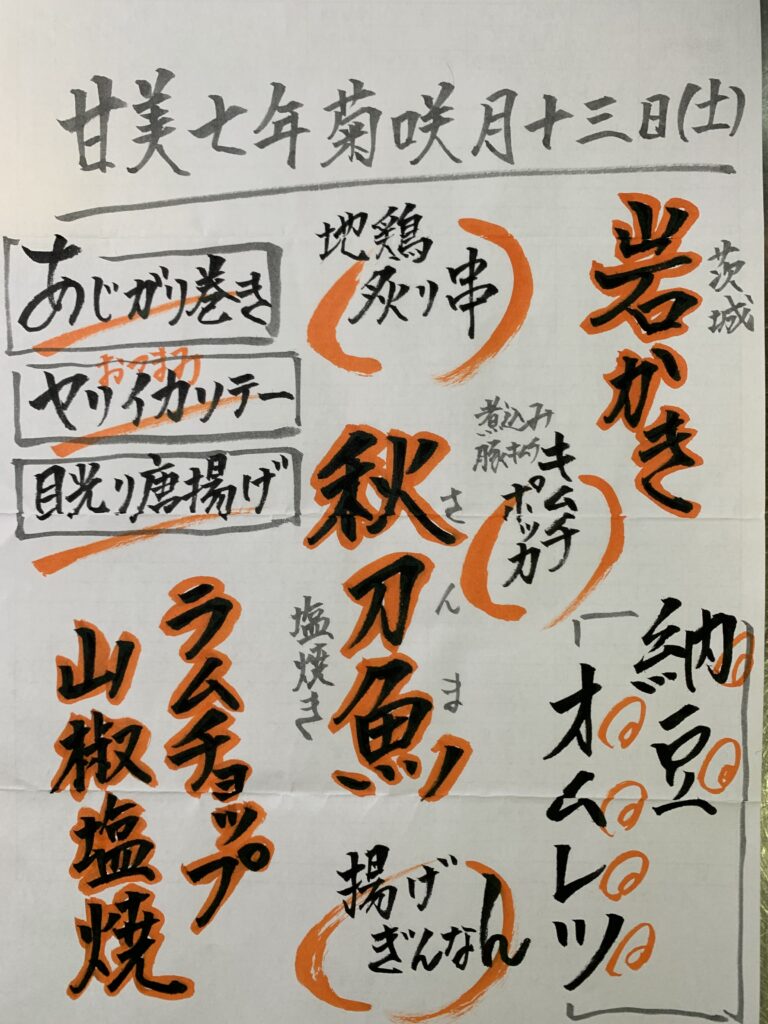 甘美七年菊咲月十三日(土)
茨城
岩かき
地鶏
炙り串
あじがり巻き
おつまみ
ヤリイカソテー
目光り唐揚げ
煮込み
豚キムチ
キムチ
ポッカ
秋刀魚
さんま
塩焼き
納豆
オムレツ
ラムチョップ
山椒塩焼
揚げ
ぎんなん